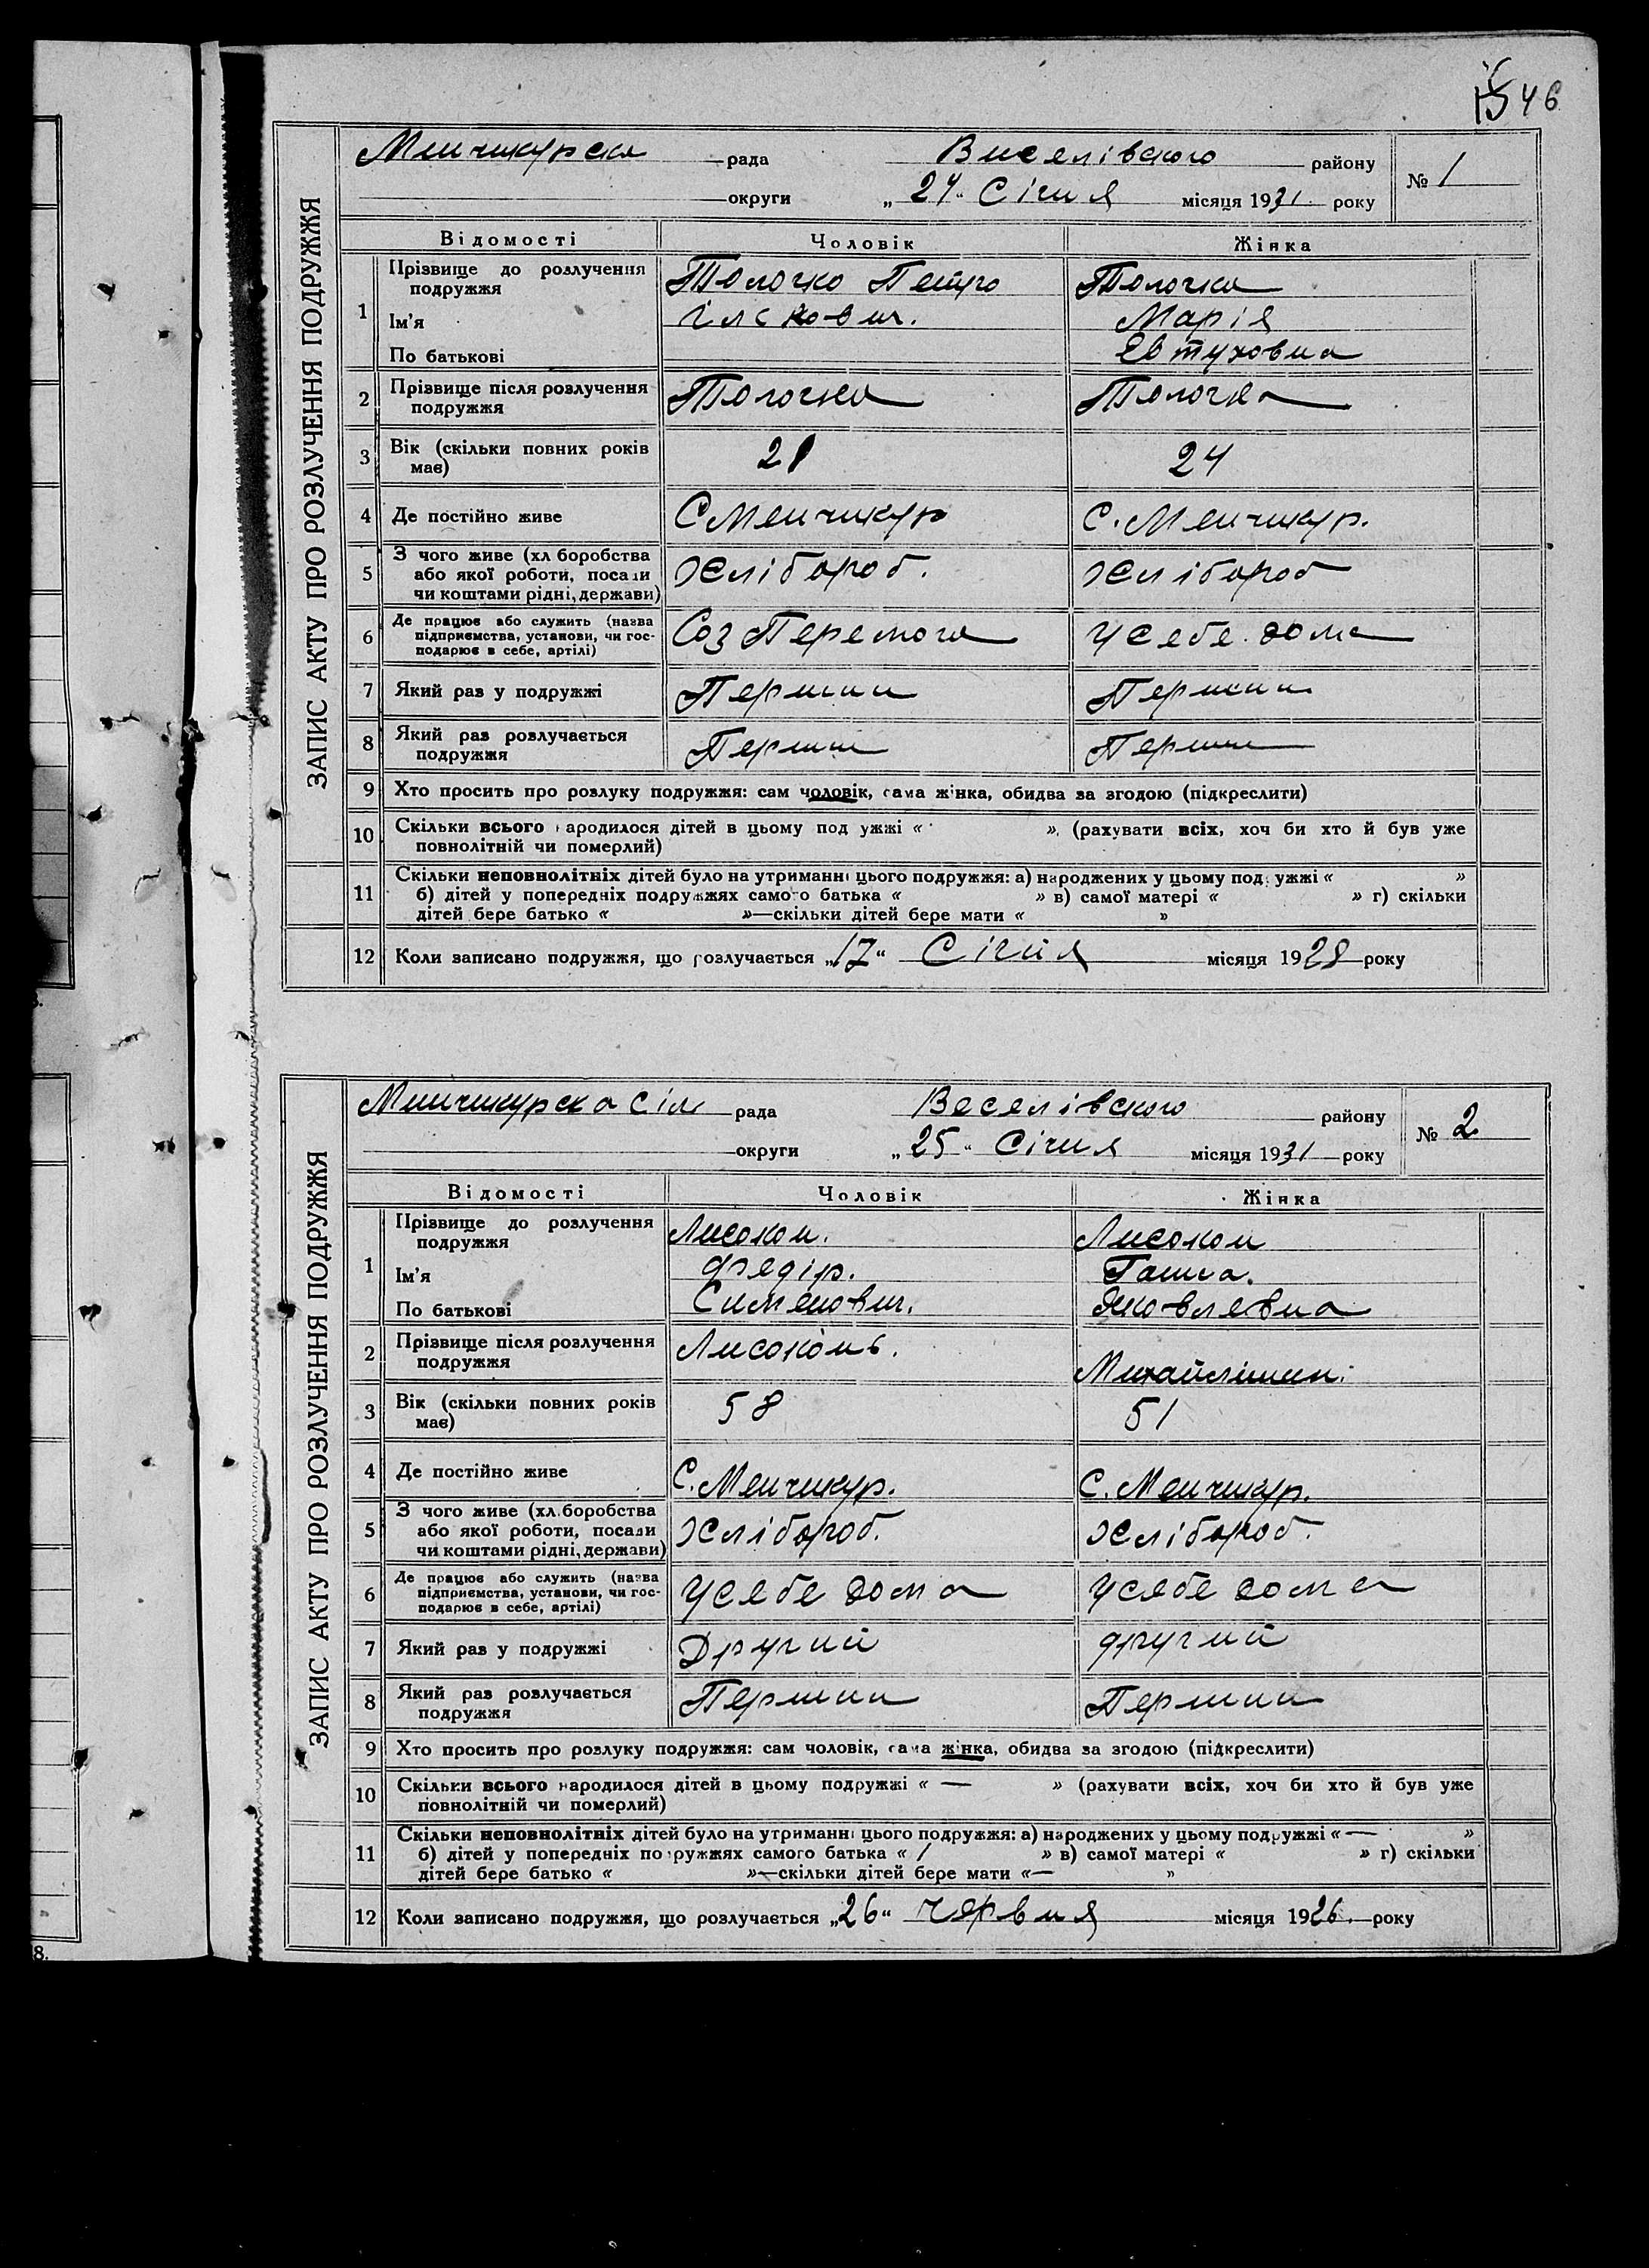 46
ЗАПИС АКТУ ПРО РОЗЛУЧЕННЯ ПОДРУЖЖЯ
Менчикурска рада Виселівского району № 1
округи „24“ Січня місяця 1931 року
Відомості Чоловік Жінка
1 Прізвище до розлучення подружжя Толочко Петро Толочка
Ім’я Марія
По батькові Евтуховна
2 Прізвище після розлучення подружжя Толочка Толочка
3 Вік (скільки повних років має) 21 24
4 Де постійно живе С Менчикур С. Менчикур.
5 З чого живе (хл боробства або якої роботи, посади чи коштами рідні, держави) Хлібороб. Хлібороб
6 Де працює або служить (назва підприємства, установи, чи господарює в себе, артілі) Соз Перемога У себе дома
7 Який раз у подружжі Перший Перший
8 Який раз розлучається подружжя Перший Перший
9 Хто просить про розлуку подружжя: сам чоловік, сама жінка, обидва за згодою (підкреслити)
10 Скільки всього народилося дітей в цьому подружжі « » (рахувати всіх, хоч би хто й був уже
повнолітній чи померлий)
11 Скільки неповнолітніх дітей було на утриманні цього подружжя: а) народжених у цьому подружжі « »
б) дітей у попередніх подружжях самого батька « » в) самої матері « » г) скільки
дітей бере батько « »—скільки дітей бере мати « »
12 Коли записано подружжя, що розлучається „17“ Січня місяця 1928 року
ЗАПИС АКТУ ПРО РОЗЛУЧЕННЯ ПОДРУЖЖЯ
Менчикурска Сіл рада Веселівского району № 2
округи „25“ Січня місяця 1931 року
Відомості Чоловік Жінка
1 Прізвище до розлучення подружжя Лисокон. Лисокон
Ім’я Федір. Ганна.
По батькові Сименович. Яковлевна
2 Прізвище після розлучення подружжя Лисоконь.
3 Вік (скільки повних років має) 58 51
4 Де постійно живе С. Менчикур. С. Менчикур.
5 З чого живе (хл.боробства або якої роботи, посади чи коштами рідні, держави) Хлібороб. Хлібороб.
6 Де працює або служить (назва підприємства, установи, чи господарює в себе, артілі) У себе дома У себе дома
7 Який раз у подружжі Другий другий
8 Який раз розлучається подружжя Перший Перший
9 Хто просить про розлуку подружжя: сам чоловік, сама жінка, обидва за згодою (підкреслити)
10 Скільки всього народилося дітей в цьому подружжі « — » (рахувати всіх, хоч би хто й був уже
повнолітній чи померлий)
11 Скільки неповнолітніх дітей було на утриманні цього подружжя: а) народжених у цьому подружжі « — »
б) дітей у попередніх подружжях самого батька « / » в) самої матері « » г) скільки
дітей бере батько « »—скільки дітей бере мати «— »
12 Коли записано подружжя, що розлучається „26“ червня місяця 1926. року
8.